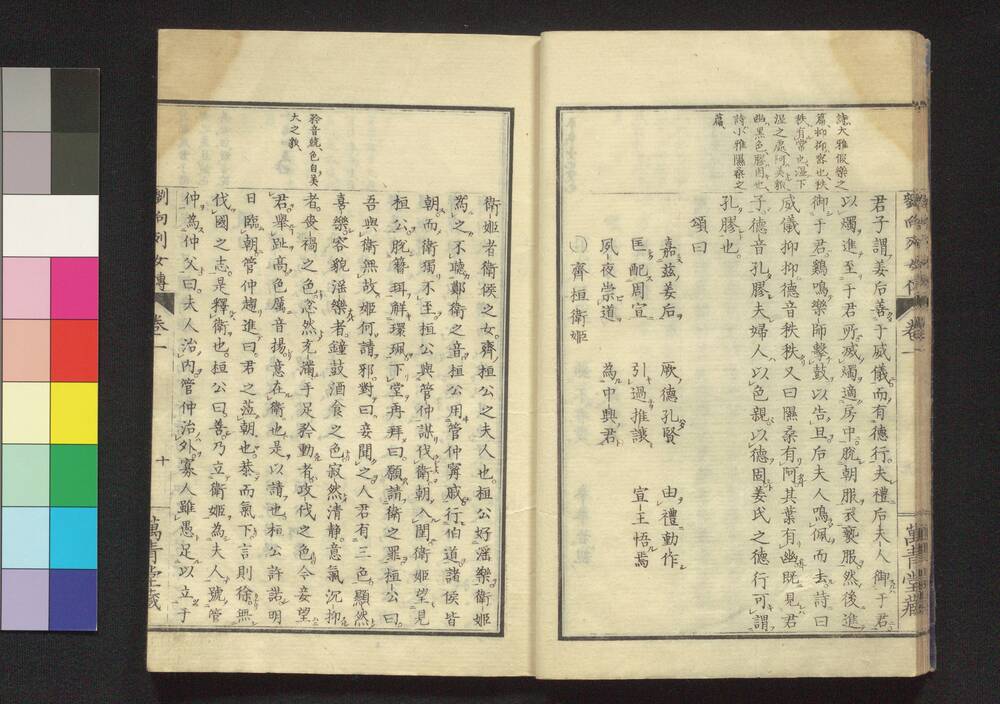 詩大雅假樂之
篇抑抑密也秩
秩有常也溼下
溼之處阿美貌
幽黑色膠固也
詩小雅隰桑之
篇
君子謂姜后善于威儀而有德行夫禮后夫人御于君
以燭進至于君所滅燭適房中脫朝服衣褻服然後進
御于君雞鳴樂師擊鼓以告旦后夫人鳴佩而去詩曰
威儀抑抑德音秩秩又曰隰桑有阿其葉有幽既見君
子德音孔膠夫婦人以色親以德固姜氏之德行可謂
孔膠也
頌曰
嘉茲姜后 厥德孔賢 由禮動作
匡配周宣 引過推讓 宣王悟焉
夙夜崇道 為中興君
齊桓衛姬
劉向列女傳 卷二
萬青堂藏
矜音兢色自美
大之貌
衛姬者衛侯之女齊桓公之夫人也桓公好淫樂衛姬
為之不聽鄭衛之音桓公用管仲寗戚行伯道諸侯皆
朝而衛獨不至桓公與管仲謀伐衛朝入閨衛姬望見
桓公脫簪珥解環珮下堂再拜曰願請衛之罪桓公曰
吾與衛無故姬何請邪對曰妾聞之人君有三色顯然
喜樂容貌淫樂者鐘鼓酒食之色寂然清靜意氣沉抑
者喪禍之色忿然充滿手足矜動者攻伐之色今妾望
君舉趾高色厲音揚意在衛也是以請也桓公許諾明
日臨朝管仲趨進曰君之蒞朝也恭而氣下言則徐無
伐國之志是釋衛也桓公曰善乃立衛姬為夫人號管
仲為仲父曰夫人治內管仲治外寡人雖愚足以立于
劉向列女傳 卷二 十 萬青堂藏